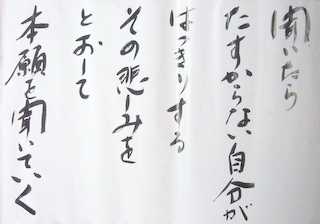 聞いたら
たすからない自分が
はっきりする
その悲しみを
とおして
本願を聞いていく